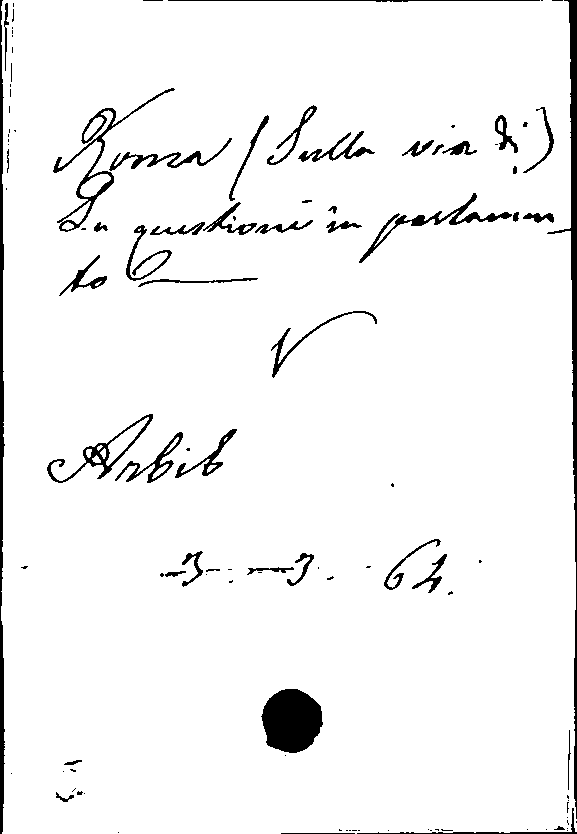 Roma (Sulla via di)
La questione in parlamen-
to
V
Arbib
3 - 3. 64.